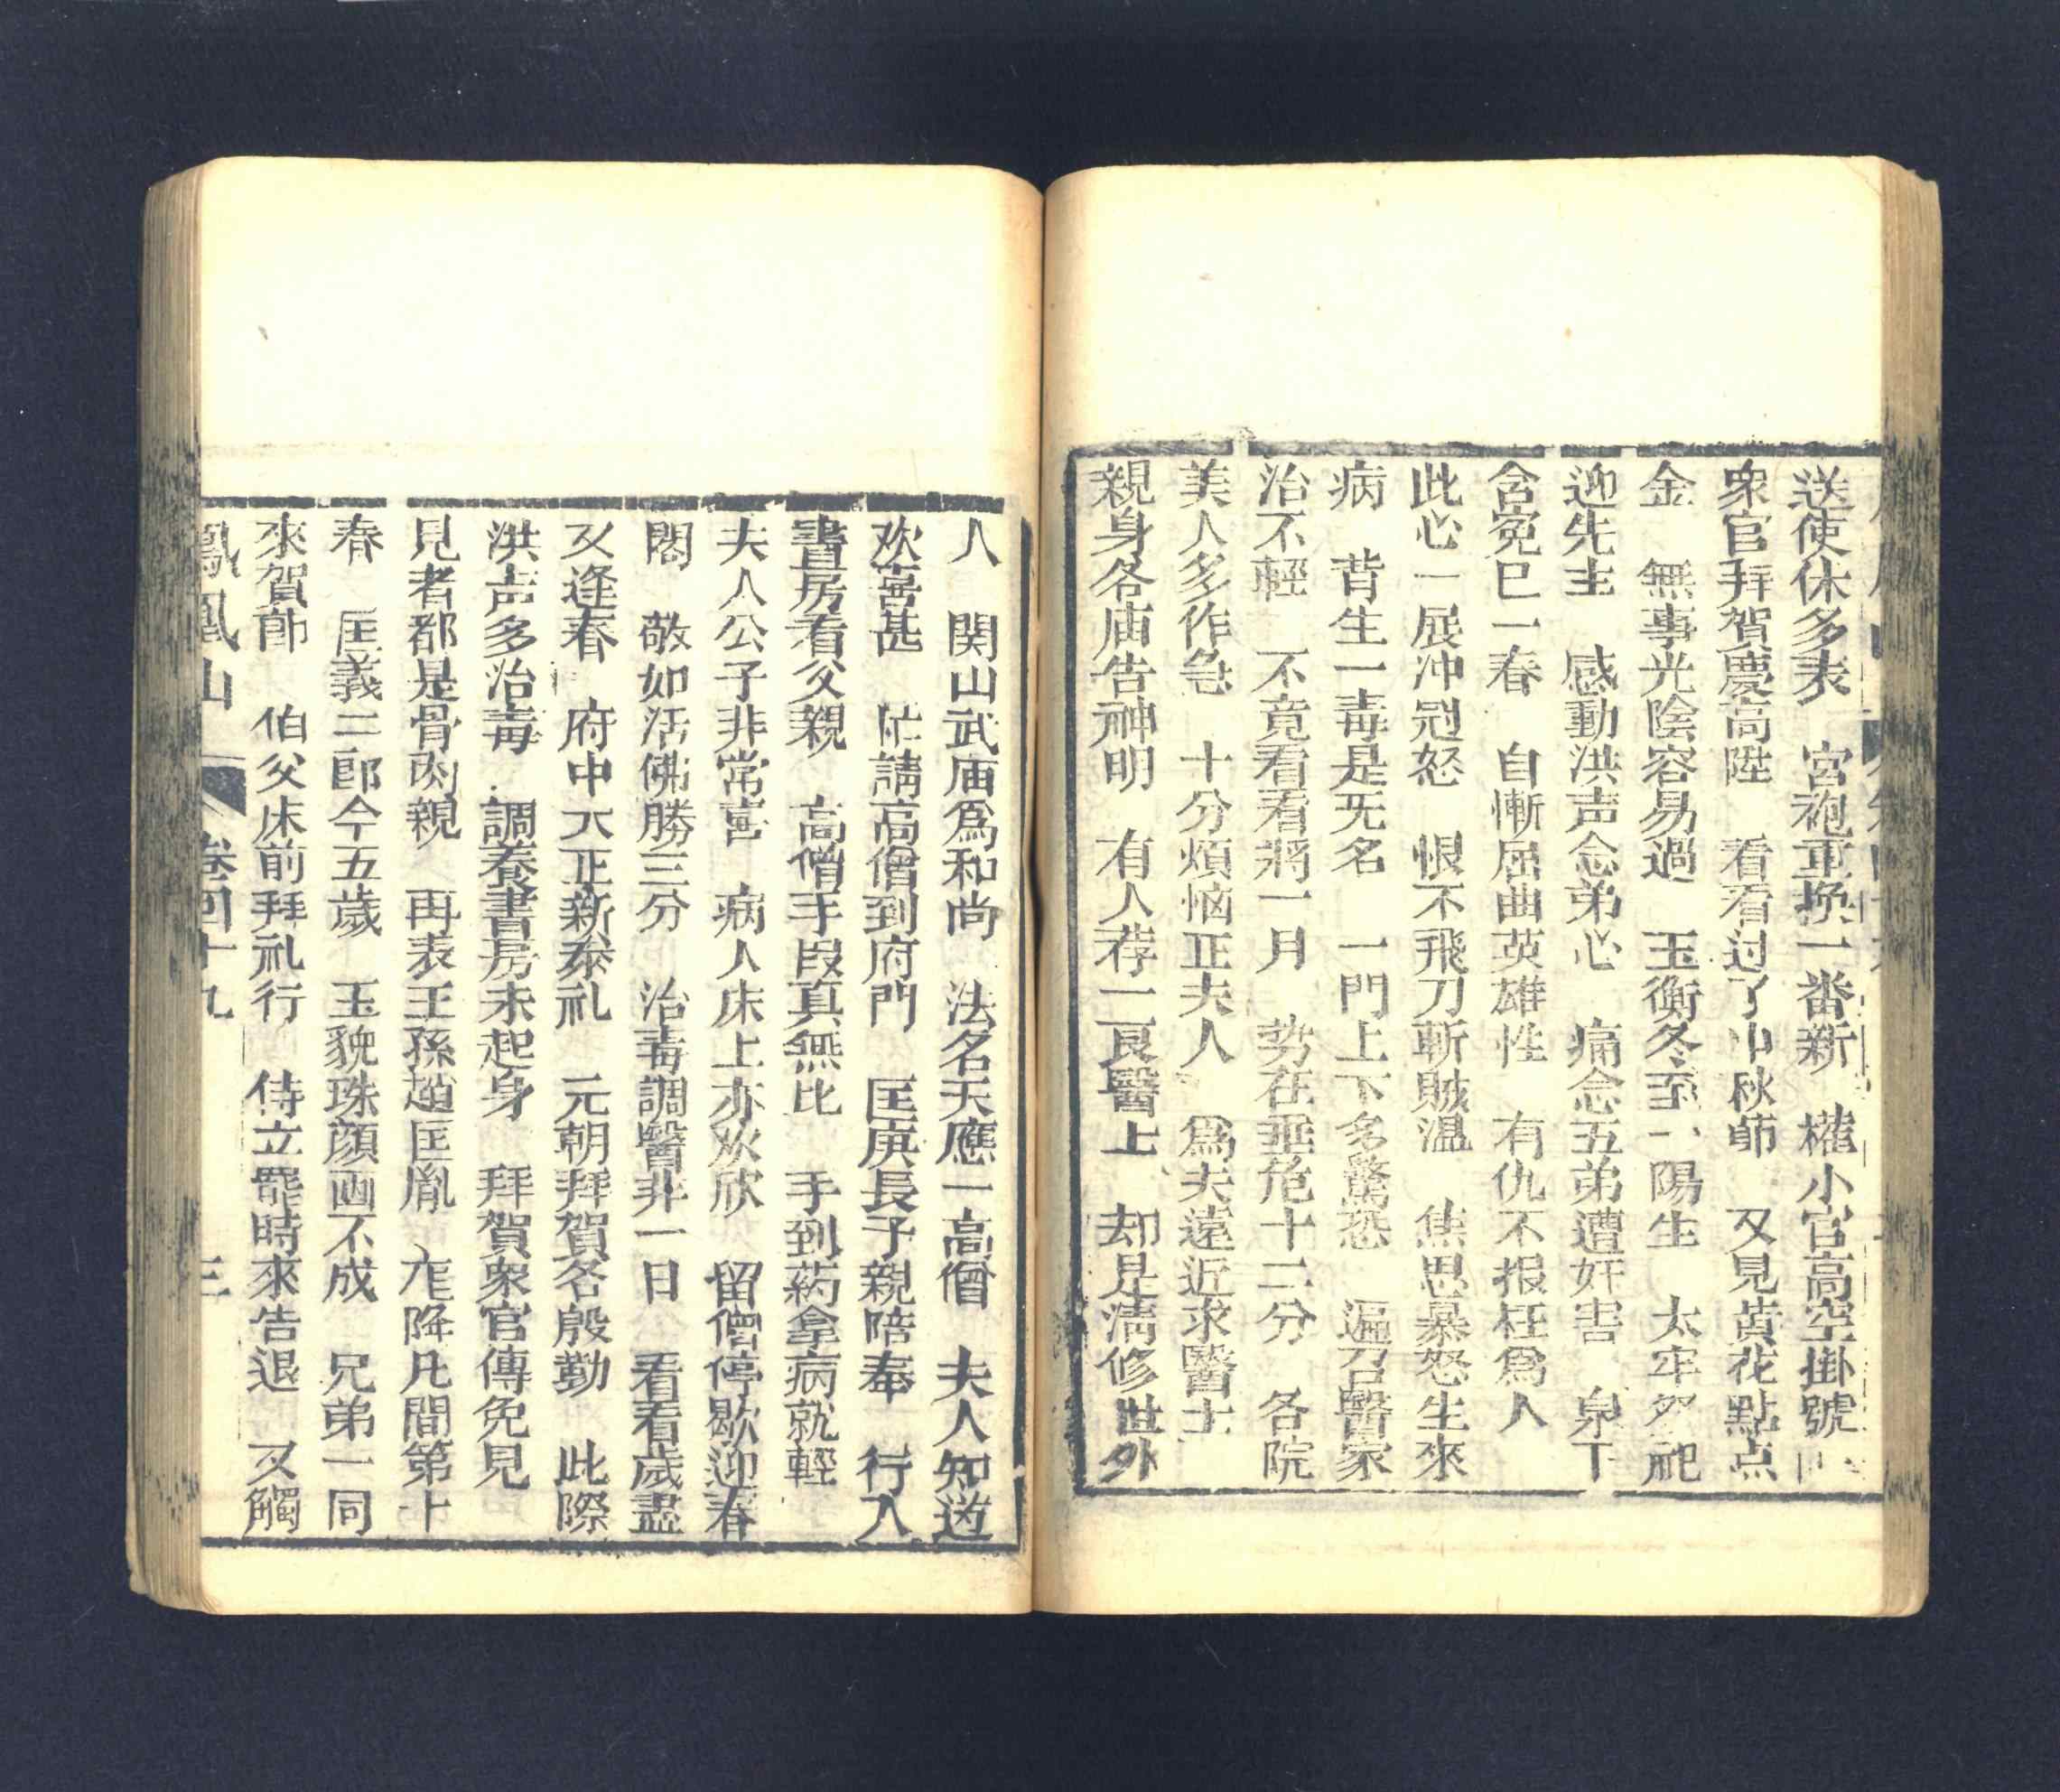 送使休多表　宮袍重換一番新　權小官高空掛號
衆官拜賀慶高陞　看看过了中秋節　又見黃花點点
金　無事光陰容易過　玉衡冬至一陽生　太牢祭祀
迎先主　感動洪声念弟心　痛念五弟遭奸害　泉下
含宛已一春　自慚屈曲英雄性　有仇不报枉爲人
此心一展冲冠怒　恨不飛刀斬賊温　焦思暴怒生來
病　背生一毒是无名　一門上下多驚恐　遍召醫家
治不輕　不竟看看將一月　势在垂危十二分　各院
美人多作急　十分煩恼正夫人　爲夫遠近求醫士
親身各庙告神明　有人荐一良醫上　却是清修世外
人　関山武庙爲和尚　法名天應一高僧　夫人知道
欢喜甚　忙請高僧到府門　匡庚長子親陪奉　行入
書房看父親　高僧手段真無比　手到药拿病就輕
夫人公子非常喜　病人床上亦欢欣　留僧停歇迎春
閣　敬如活佛勝三分　治毒調醫非一日　看看歲盡
又逢春　府中大正新泰礼　元朝拜賀各殷勤　此際
洪声多治毒　調養書房未起身　拜賀衆官傳免見
見者都是骨肉親　再表王孫趙匡胤　降凡間第十
春　匡義二郎今五歲　玉貌珠顔画不成　兄弟一同
來賀節　伯父床前拜礼行　侍立罷時來告退　又觸
鳳凰山　卷四十九　三